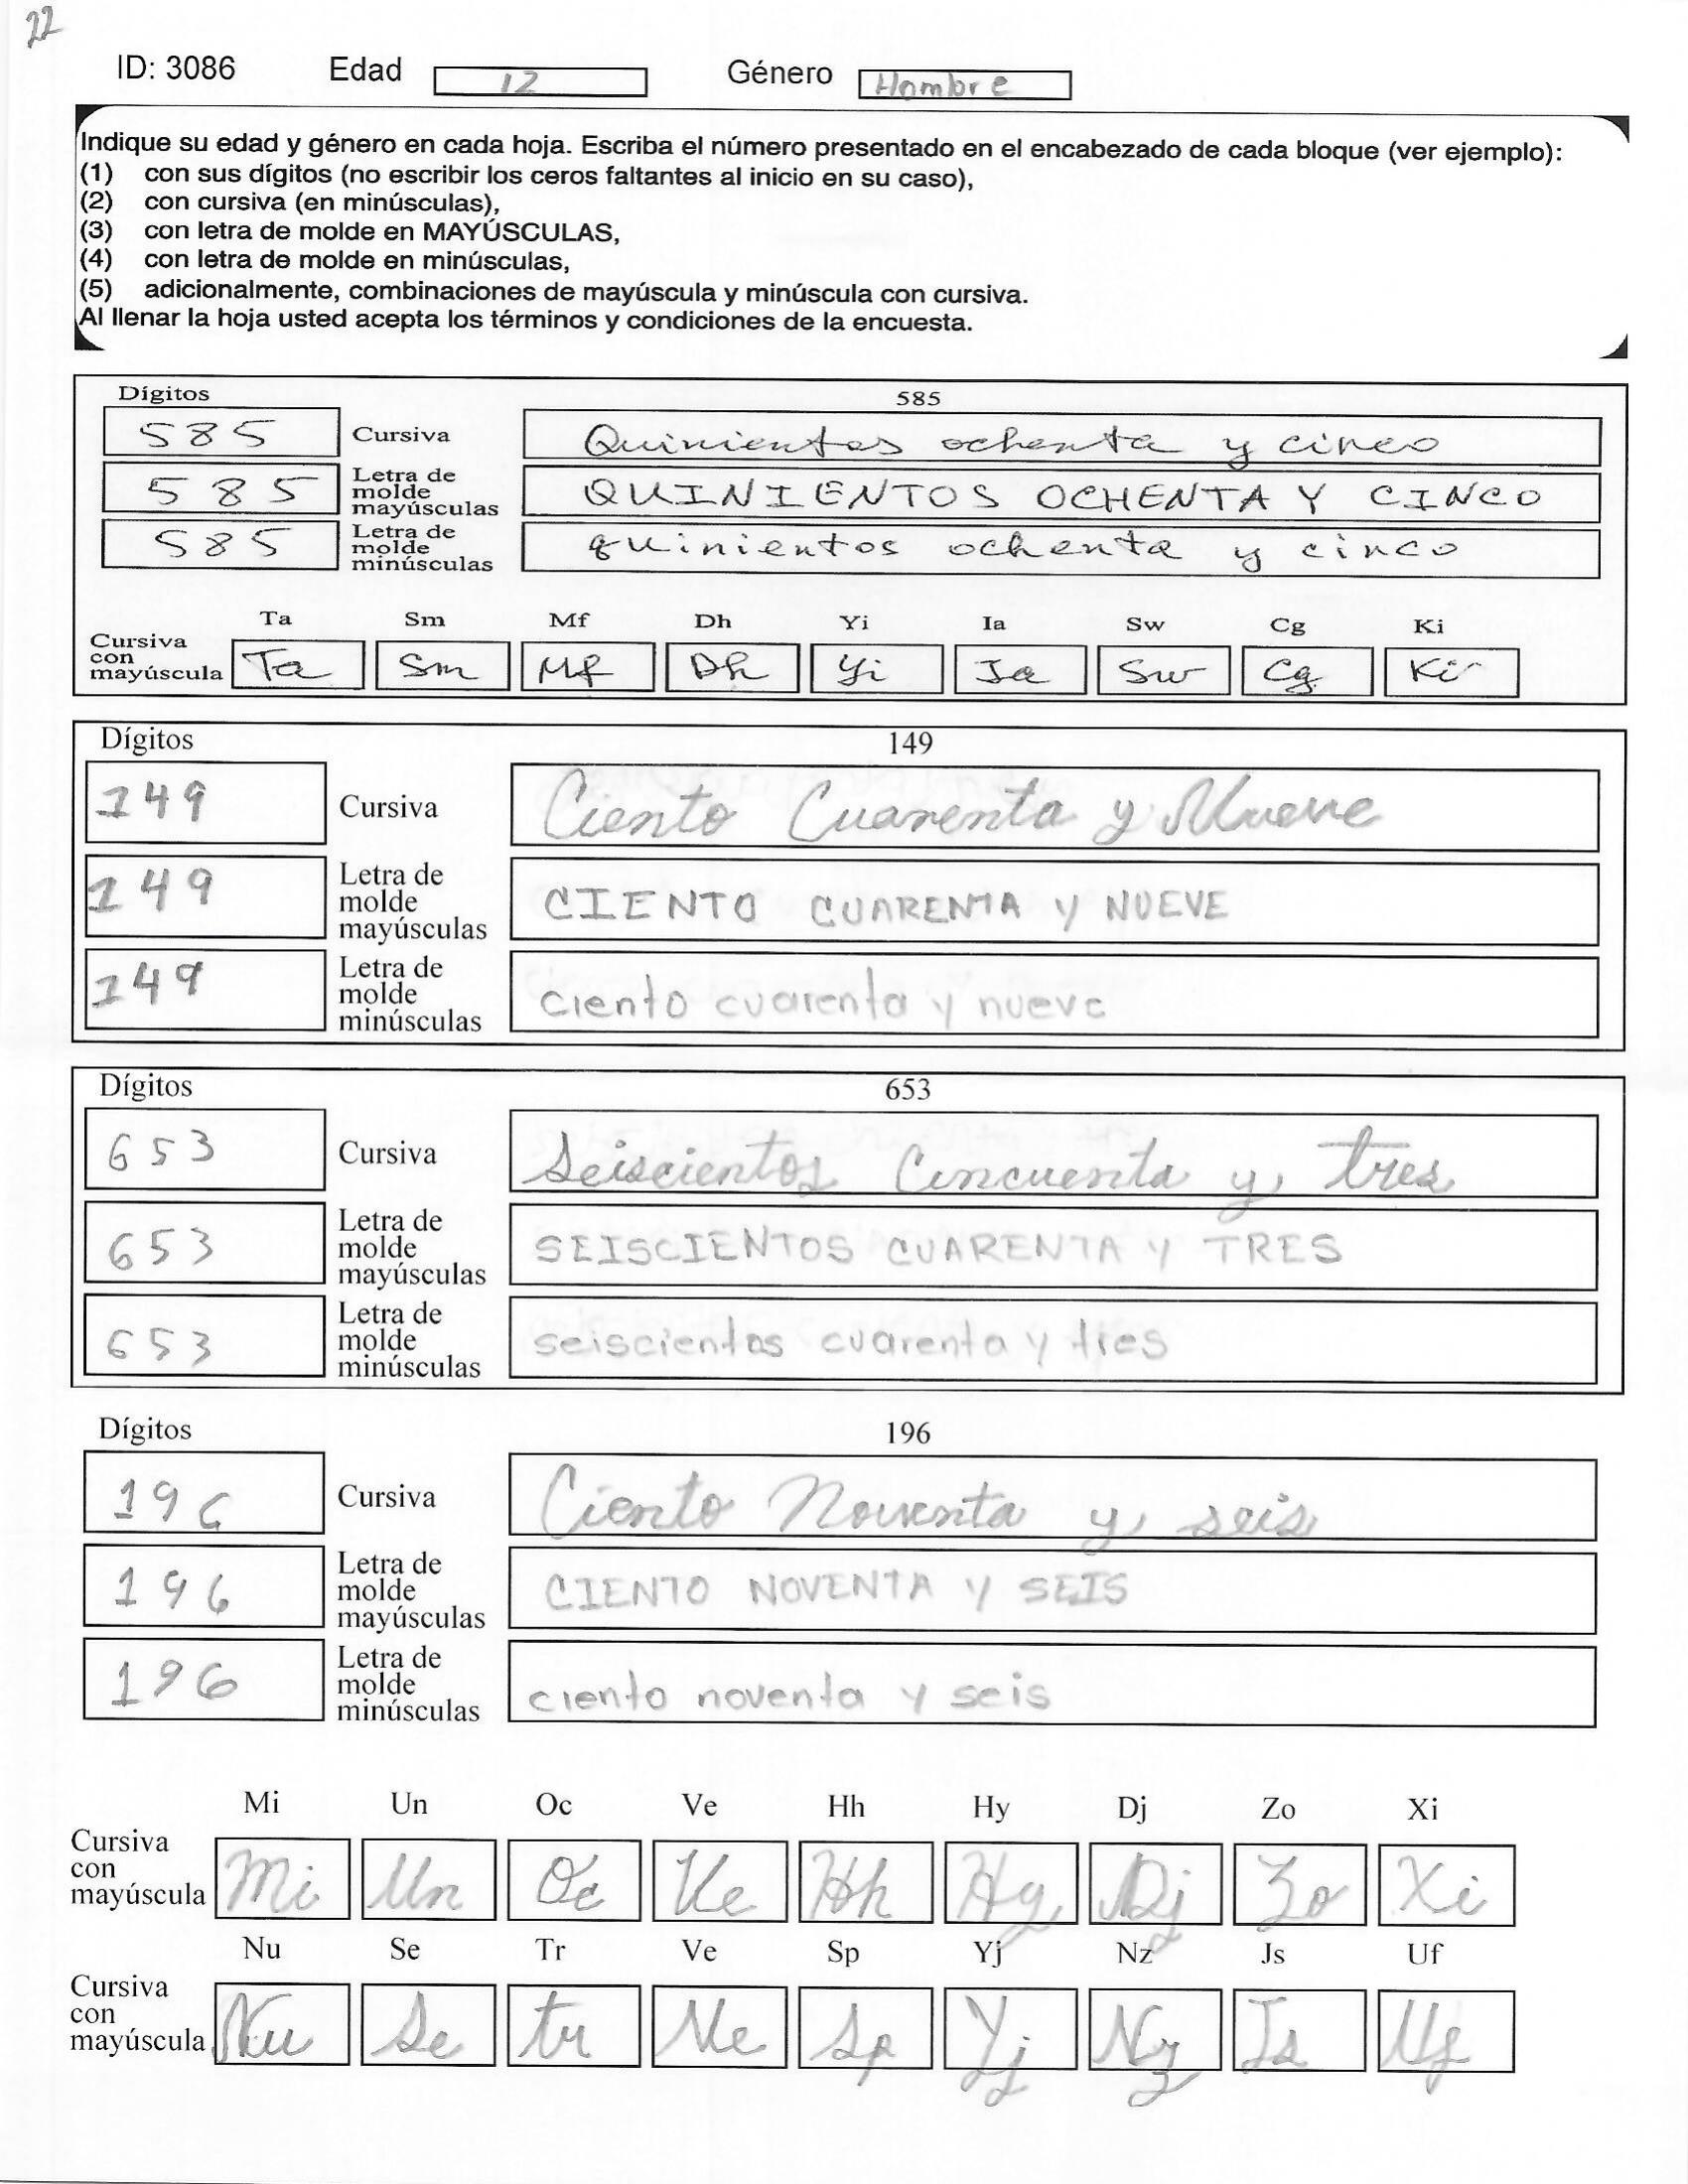 22
ID: 3086 Edad 12 Género Hombre
Indique su edad y género en cada hoja. Escriba el número presentado en el encabezado de cada bloque (ver ejemplo):
(1) con sus dígitos (no escribir los ceros faltantes al inicio en su caso),
(2) con cursiva (en minúsculas),
(3) con letra de molde en MAYÚSCULAS,
(4) con letra de molde en minúsculas,
(5) adicionalmente, combinaciones de mayúscula y minúscula con cursiva.
Al llenar la hoja usted acepta los términos y condiciones de la encuesta.
Dígitos 585
585 Cursiva Quinientos ochenta y cinco
585 Letra de molde mayúsculas QUINIENTOS OCHENTA Y CINCO
585 Letra de molde minúsculas quinientos ochenta y cinco
Ta Sm Mf Dh Yi Ia Sw Cg Ki
Cursiva con mayúscula Ta Sm Mf Dh Yi Ia Sw Cg Ki
Dígitos 149
149 Cursiva Ciento Cuarenta y Nueve
149 Letra de molde mayúsculas CIENTO CUARENTA Y NUEVE
149 Letra de molde minúsculas ciento cuarenta y nueve
Dígitos 653
653 Cursiva Seiscientos Cincuenta y tres
653 Letra de molde mayúsculas SEISCIENTOS CUARENTA Y TRES
653 Letra de molde minúsculas seiscientos cuarenta y tres
Dígitos 196
196 Cursiva Ciento Noventa y seis
196 Letra de molde mayúsculas CIENTO NOVENTA Y SEIS
196 Letra de molde minúsculas ciento noventa y seis
Mi Un Oc Ve Hh Hy Dj Zo Xi
Cursiva con mayúscula Mi Un Oc Ve Hh Hy Dj Zo Xi
Nu Se Tr Ve Sp Yj Nz Js Uf
Cursiva con mayúscula Nu Se tr Ve Sp Yj Nz Js Uf